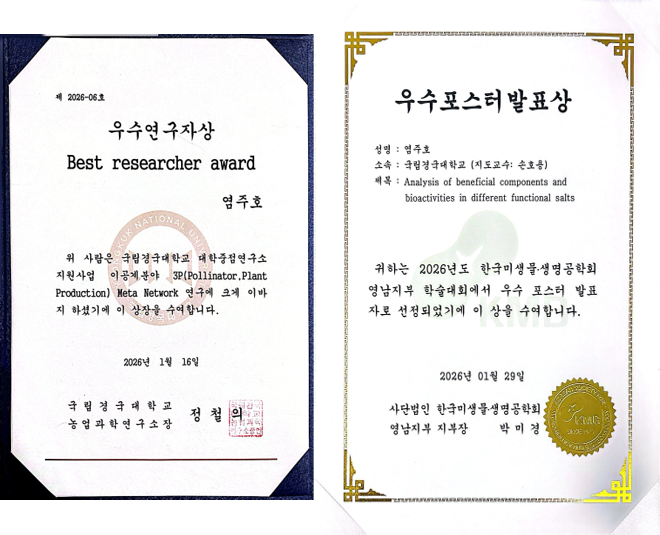 제 2026-06호
우수연구자상
Best researcher award
염주호
위 사람은 국립경국대학교 대학중점연구소
지원사업 이공계분야 3P(Pollinator,Plant
Production) Meta Network 연구에 크게 이바
지 하셨기에 이 상장을 수여합니다.
2026년 1월 16일
국립경국대학교
농업과학연구소장 정철의
우수포스터발표상
성명 : 염주호
소속 : 국립경국대학교 (지도교수: 손호용)
제목 : Analysis of beneficial components and
bioactivities in different functional salts
귀하는 2026년도 한국미생물·생명공학회
영남지부 학술대회에서 우수 포스터 발표
자로 선정되었기에 이 상을 수여합니다.
KMB
2026년 01월 29일
사단법인 한국미생물·생명공학회
영남지부 지부장 박미경